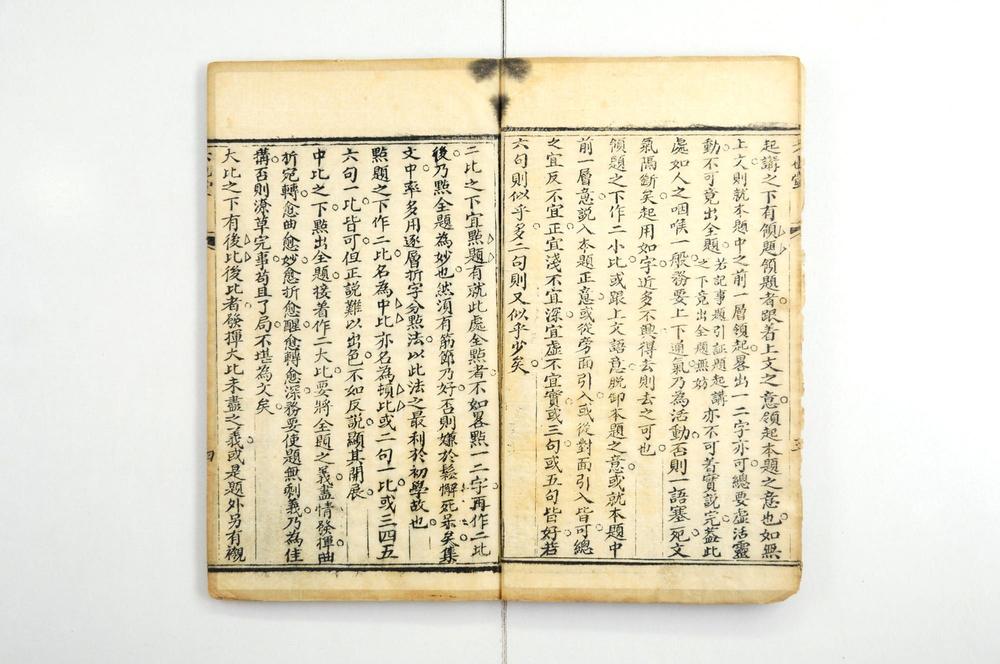 起講之下有領題領題者跟着上文之意領起本題之意也如無
上文則就本題中之前一層領起畧出一二字亦可總要虛活靈
動不可竟出全題若記事題引証題起講之下竟出全題無妨亦不可著實說完蓋此
處如人之咽喉一般務要上下通氣乃為活動否則一語塞死文
氣隔斷矣起用如字近多不興得去則去之可也
領題之下作二小比或跟上文語意脫卸本題之意或就本題中
前一層意說入本題正意或從旁面引入或從對面引入皆可總
之宜反不宜正宜淺不宜深宜虛不宜實或三句或五句皆好若
六句則似乎多二句則又似乎少矣
二比之下宜點題有就此處全點者不如畧點一二字再作二比
後乃點全題為妙也然須有筋節乃好否則嫌於鬆懈死呆矣集
文中率多用逐層折字分點法以此法之最利於初學故也
點題之下作二比名為中比亦名為頓比或二句一比或三四五
六句一比皆可但正說難以出色不如反說顯其開展
中比之下點出全題接着作二大比要將全題之義盡情發揮曲
折宛轉愈曲愈妙愈折愈醒愈轉愈深務要使題無剩義乃為佳
搆否則潦草完事苟且了局不堪為文矣
大比之下有後比後比者發揮大比未盡之義或是題外另有襯